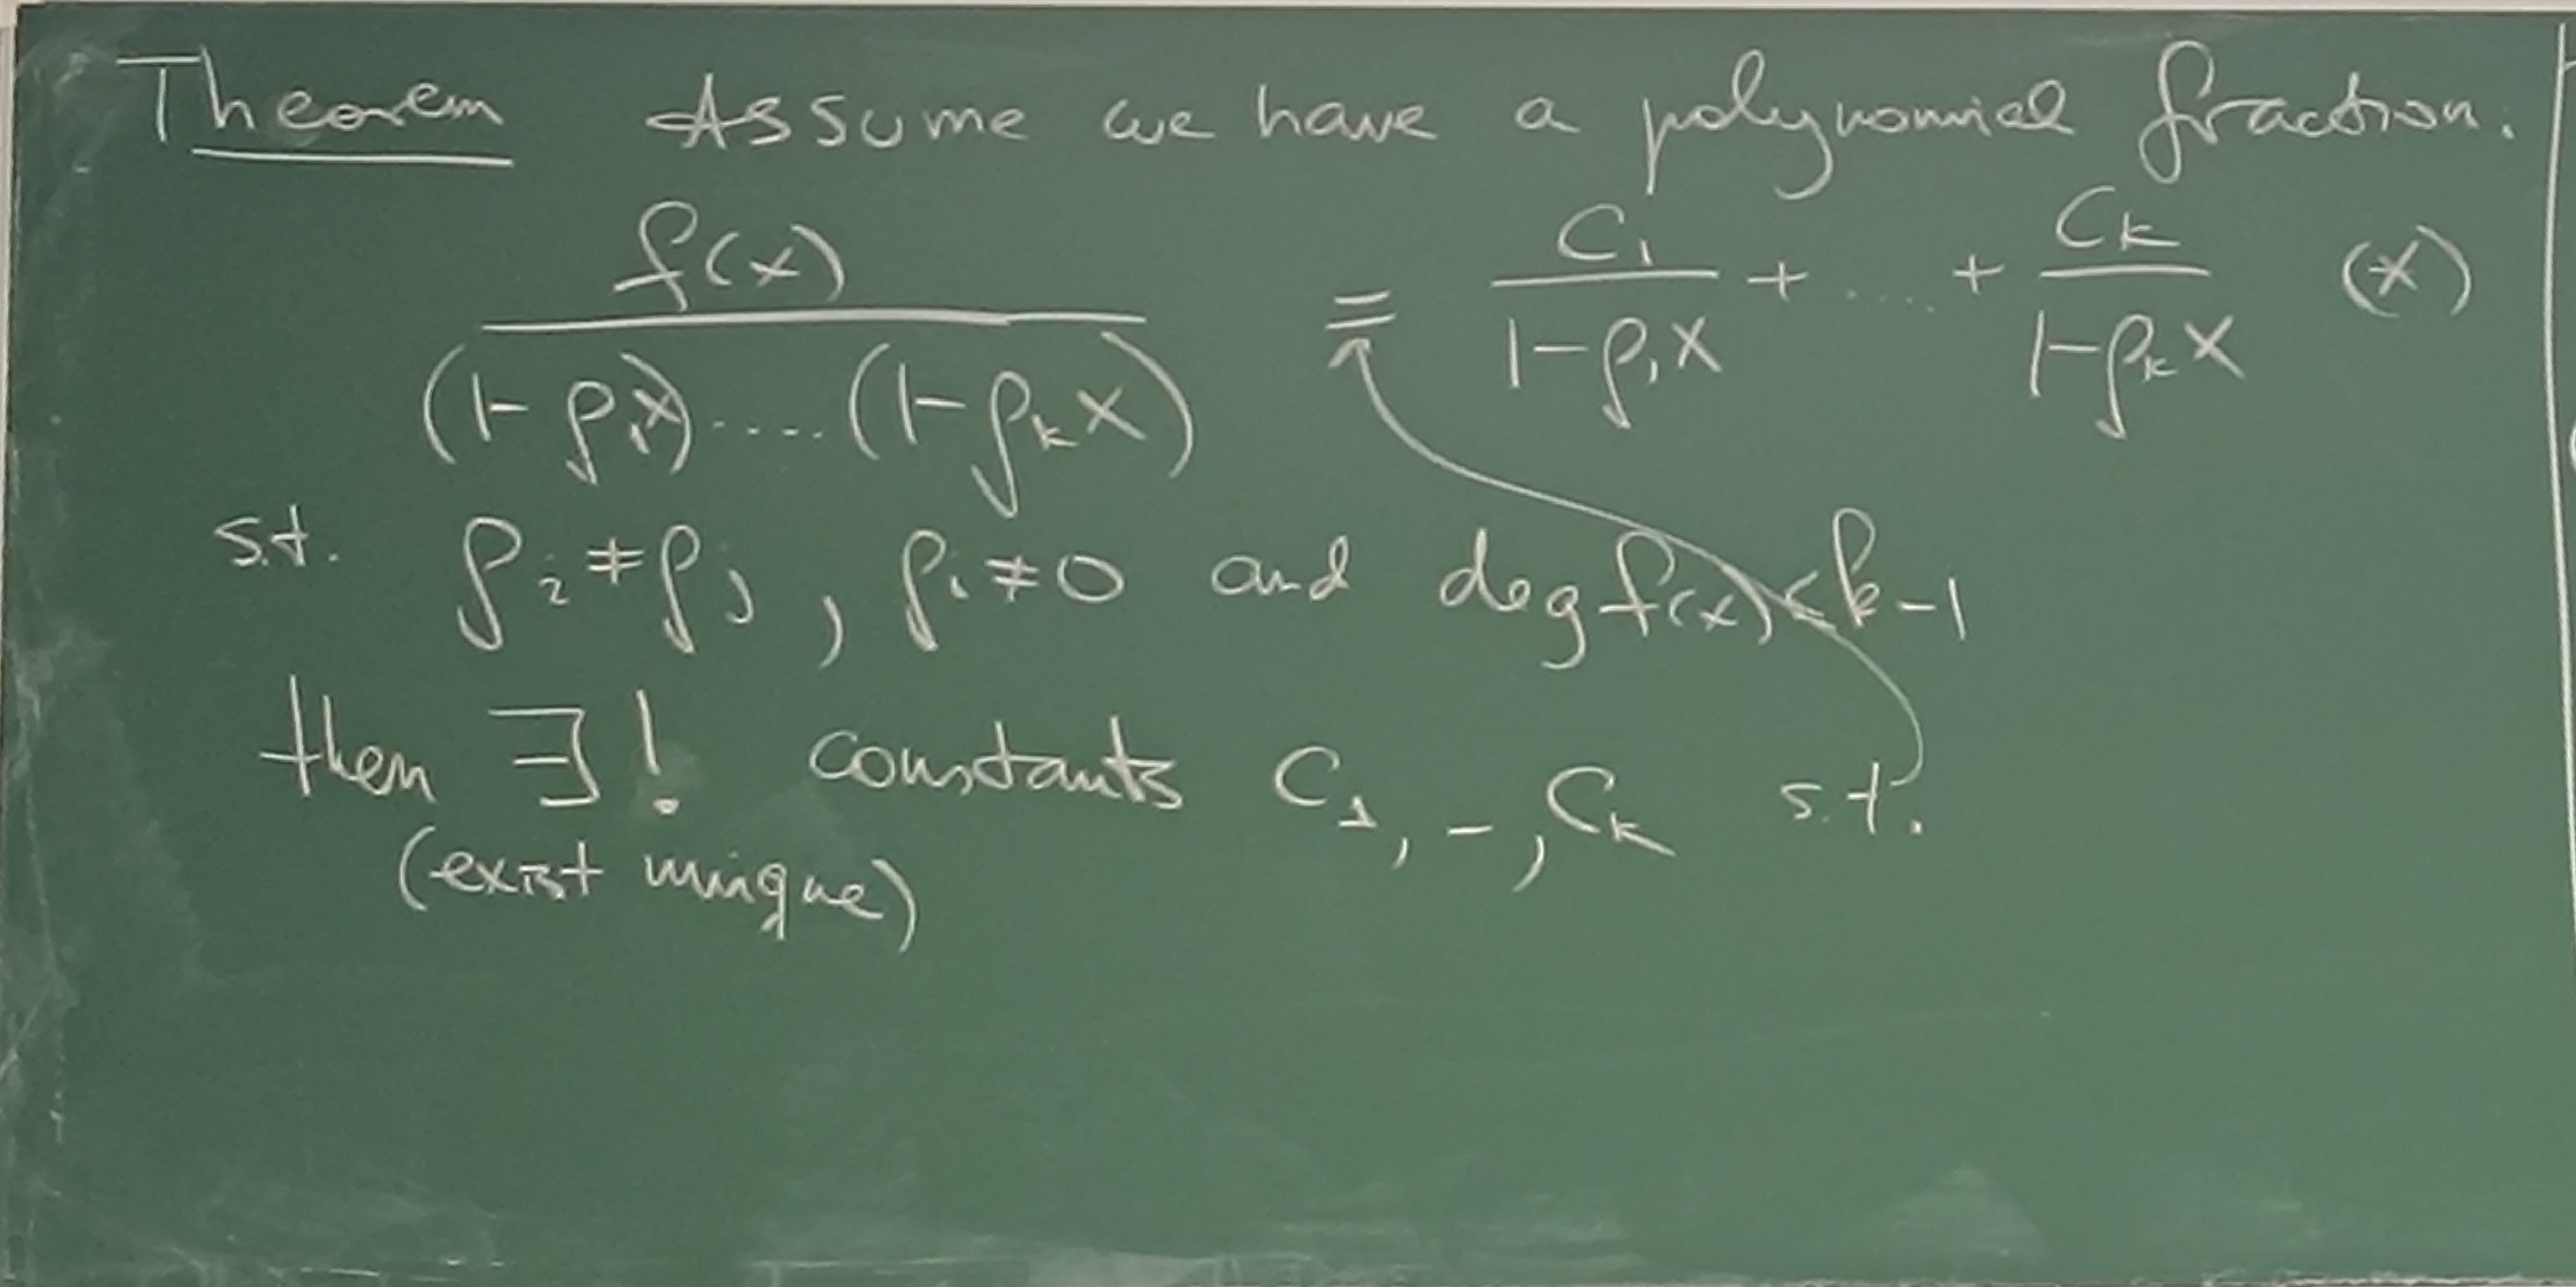 Theorem Assume we have a polynomial fraction.
f(x) / (1-ρ₁x).....(1-ρₖx) = C₁/(1-ρ₁x) + .... + Cₖ/(1-ρₖx) (*)
s.t. ρᵢ≠ρⱼ, ρᵢ≠0 and deg f(x)<k-1
then ∃! constants C₁,-,Cₖ s.t.
(exist unique)